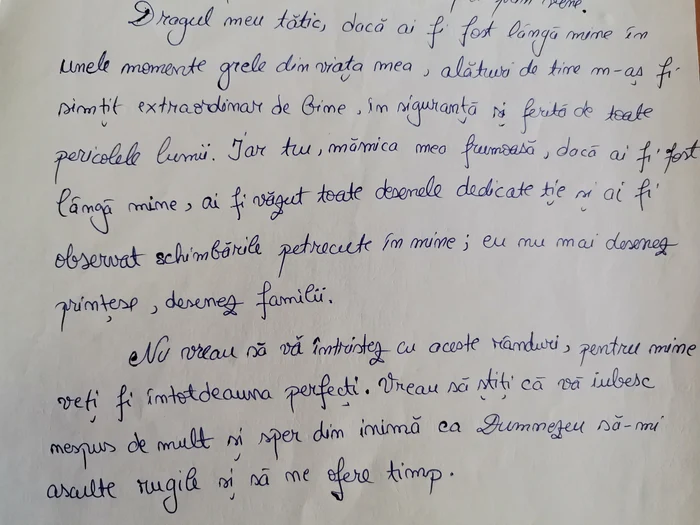 Dragul meu tătic, dacă ai fi fost lângă mine în
unele momente grele din viața mea, alături de tine m-aș fi
simțit extraordinar de bine, în siguranță și ferită de toate
pericolele lumii. Iar tu, mămica mea frumoasă, dacă ai fi fost
lângă mine, ai fi văzut toate desenele dedicate ție și ai fi
observat schimbările petrecute în mine; eu nu mai desenez
prințese, desenez familii.
Nu vreau să vă întristez cu aceste rânduri, pentru mine
veți fi întotdeauna perfecți. Vreau să știți că vă iubesc
nespus de mult și sper din inimă ca Dumnezeu să-mi
asculte rugile și să ne ofere timp.